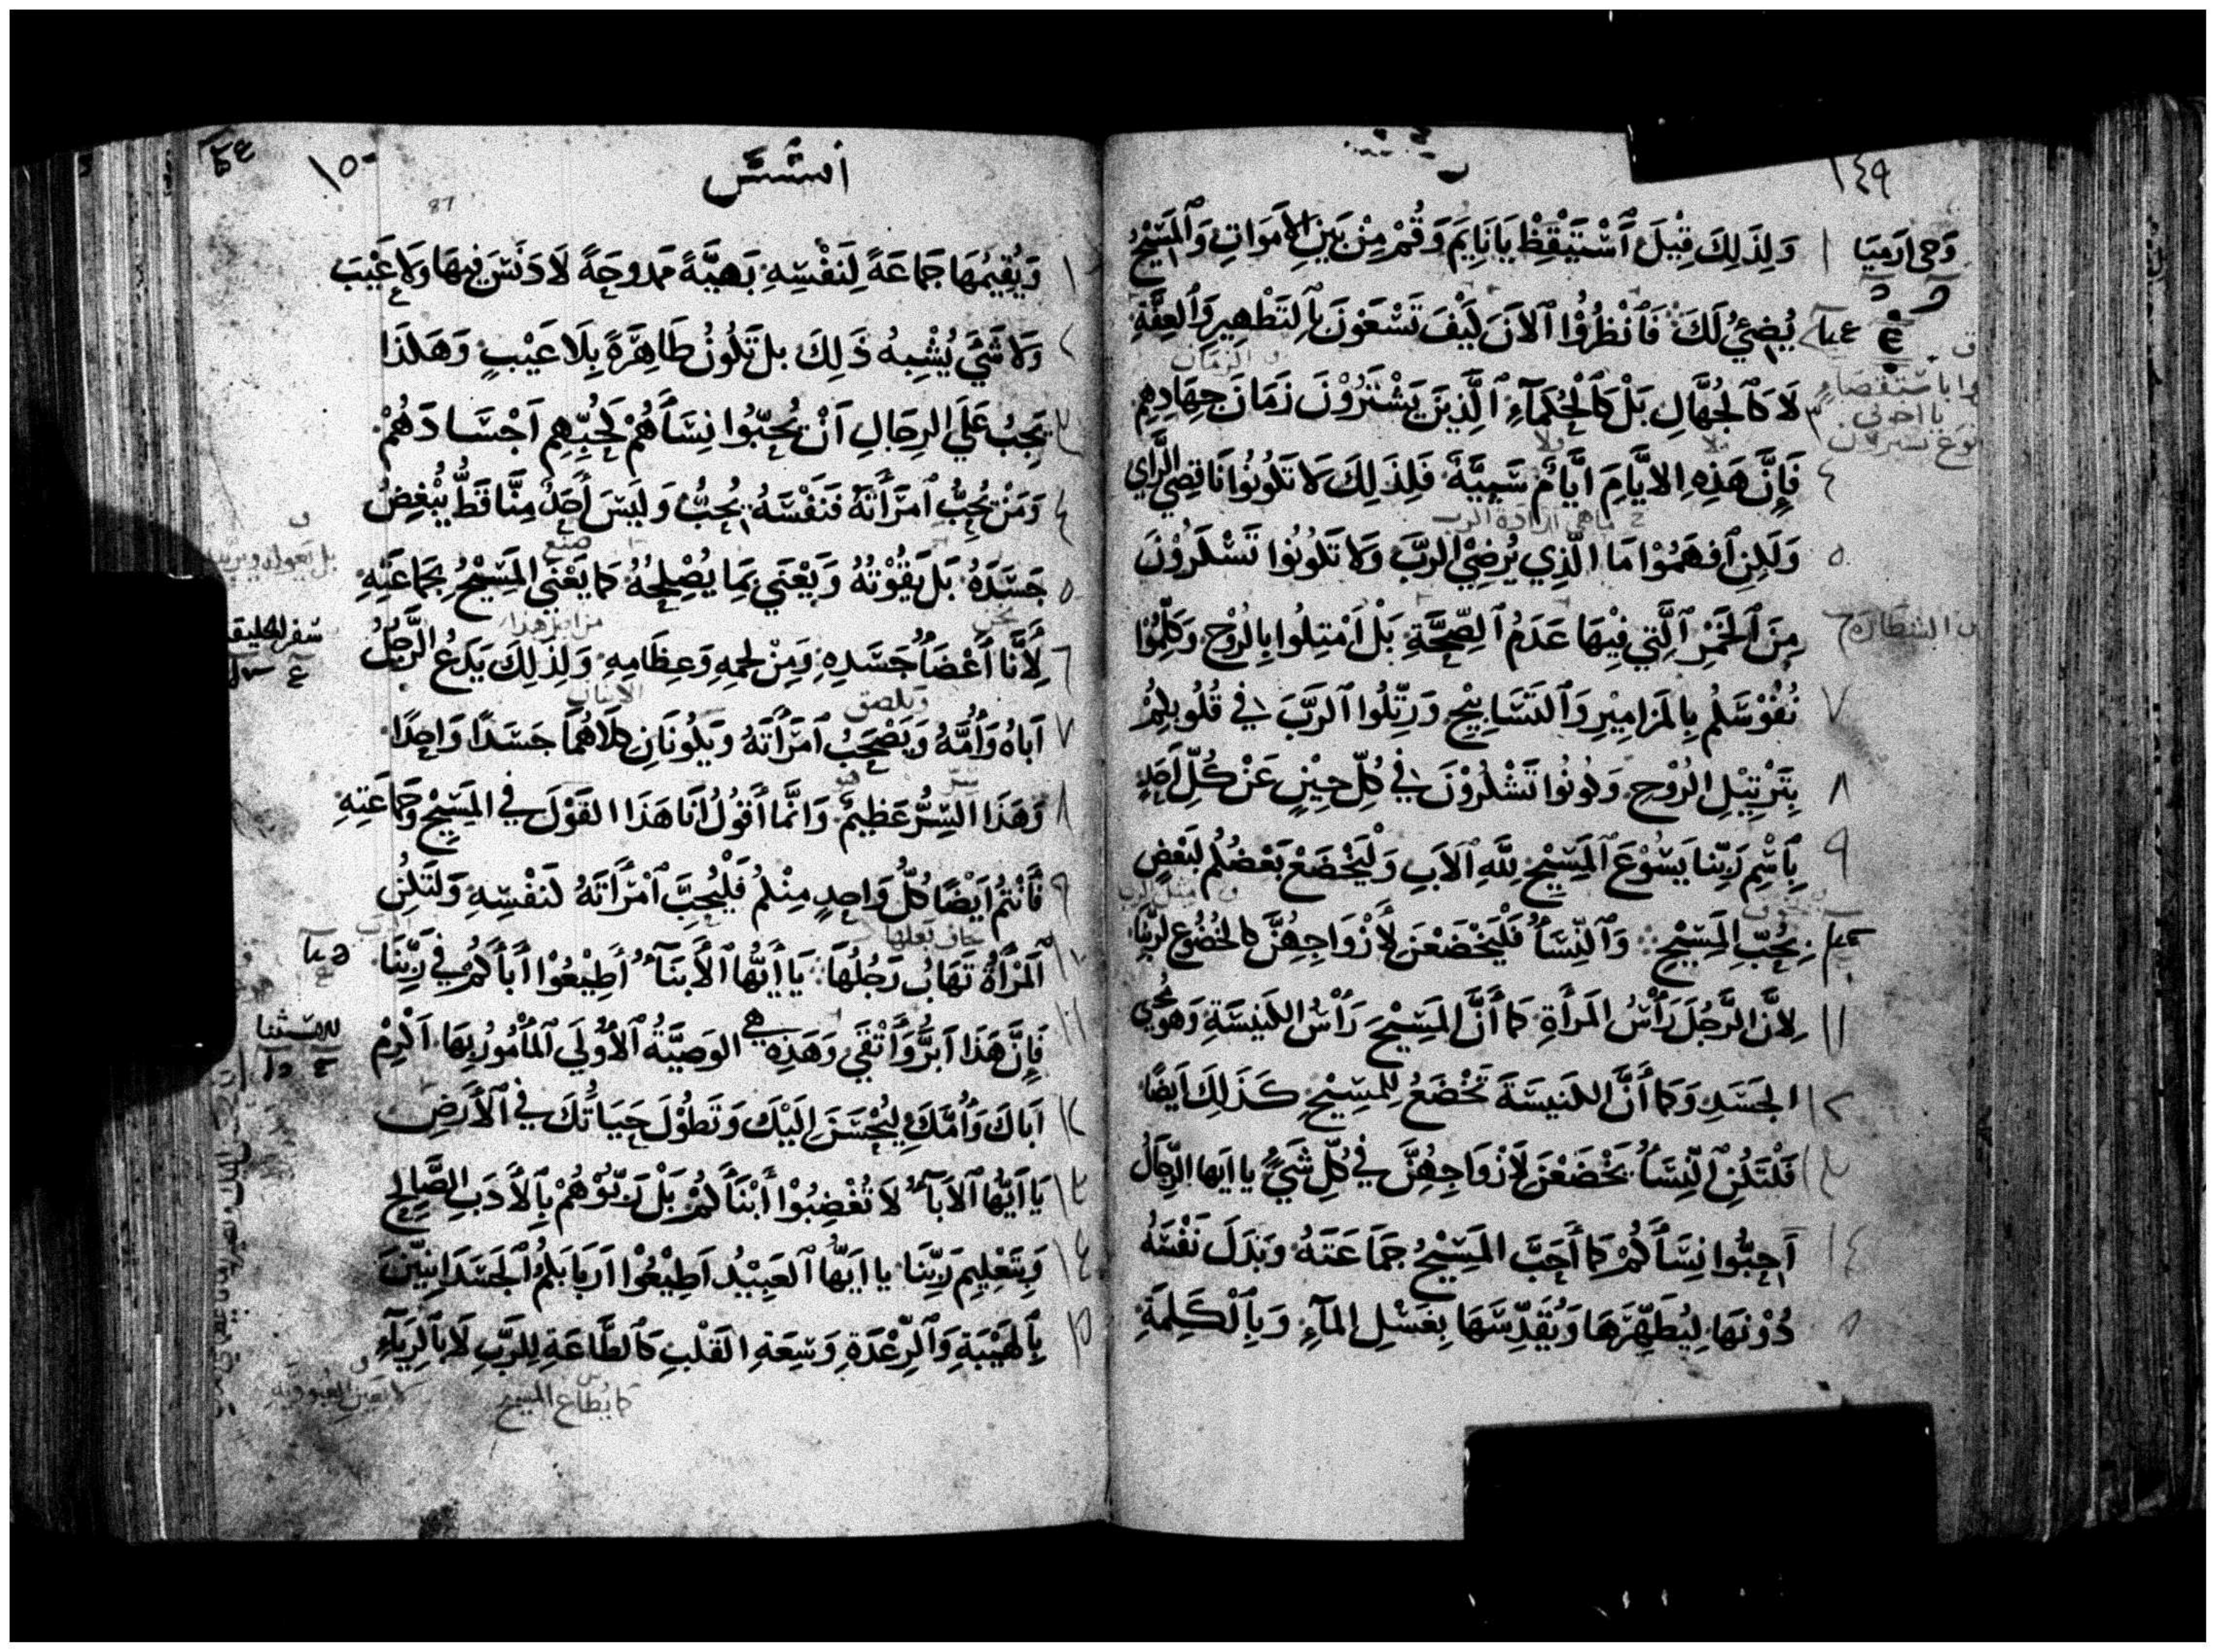 ١٤٩
وَحي ارَمِيَا
١ وَلِذَلِكَ قِيْلَ ٱسْتَيْقِظْ يَا نَايِمَ وَقُمْ مِنْ بَيْنِ الاَمَوَاتِ وَٱلمَسِيْحُ
يُضِئُ لَكَ فَٱنْظُرُوْا ٱلاَنَ كَيْفَ تَسْعَوْنَ بِٱلتَطْهِيرِ وَٱلعِفَّةِ
و الزمان
٣ لَا كَٱلجُهَّالِ بَلْ كَٱلْحُكَمَآءِ ٱلَّذِيَنَ يَشْتَرُوْنَ زَمَانَ جِهَادِهِمِ
٤ فَإِنَّ هَذِهِ الايَّامَ ايَّامٌ سَمِيَّةٌ فَلِذَلِكَ لَا تَكُونُوا نَاقِصِي الرَّاي
ما هي ارادة الرب
٥ وَلَكِنِ ٱفهَمُوْا مَا الَّذِي يُرضِيْ الرَبَّ وَلَا تَكُونُوا تَسْكَرُوْنَ
٦ مِنَ ٱلخَمْرِ ٱلَّتِي فِيْهَا عَدَمُ ٱلصِّحَّةِ بَلْ اَمْتِلُوا بِالرُوْحِ وَكَلِّمُوْا
٧ نُفُوْسَكُم بِالمَزَامِيْرِ وَٱلتَسَابِيْحِ وَرَتِّلُوا ٱلرَبَّ فِي قُلُوبِكُمْ
٨ بِتَرْتِيْلِ الرُوْحِ وَكُونُوا تَشْكُرُوْنَ فِي كُلِّ حِيْنٍ عَنْ كُلِّ اَحَدٍ
٩ بِٱسْمِ رَبِّنَا يَسُوْعَ ٱلمَسِيْحِ لِلَّهِ ٱلاَبِ وَلْيَخْضَعْ بَعْضُكُم لِبَعْضٍ
بِحُبِّ المَسِيْحِ وَٱلنِّسَآُ فَلْيَخْضَعْنَ لأَزْوَاجِهِنَّ كَالخُضُوْعِ لِرَبِّنَا
١١ لِأَنَّ الرَّجُلَ رَأْسُ المَرأَةِ كَمَا أَنَّ المَسِيْحَ رَأْسُ الكَنِيْسَةِ وَهوَ مُحْيي
١٢ الجَسَدِ وَكَمَا أَنَّ الكَنِيسَةَ تَخْضَعُ لِلمَسِيْحِ كَذَلِكَ اَيضًا
١٣ فَلْتَكُنِ ٱلنِّسَآُ يَخْضَعْنَ لأَزْوَاجِهِنَّ فِي كُلِّ شَيْءٍ يا ايَها الرِّجَالُ
١٤ أَحِبُّوا نِسَآَكُمْ كَمَا أَحَبَّ المَسِيْحُ جَمَاعَتَهُ وَبَذَلَ نَفْسَهُ
دُوْنَهَا لِيُطَهِّرَهَا وَيُقَدِّسَهَا بِغَسْلِ المآءِ وَبِٱلْكَلِمَةِ
١٥٠
افسَسَ
87
١ وَيُقِيْمُهَا جَمَاعَةً لِنَفْسِهِ بَهِيَّةً مَمدوحَةً لَا دَنَسَ فِيهَا وَلَا عَيْبَ
٢ وَلَا شَيَ يُشْبِهُ ذَلِكَ بل تَكُونُ طَاهِرَةً بِلَا عَيْبٍ وَهَكذَا
٣ يَجِبُ عَلَى الرِجَالِ اَنْ يُحِبّوُا نِسَآَهُمْ كَحُبِّهِم اَجْسَادَهُمْ
٤ وَمَنْ يُحِبُّ ٱمرَأَتَهُ فَنَفْسَهُ يُحِبُّ وَلَيسَ أَحَدٌ مِنَّا قَطُّ يُبْغِضُ
صنع
٥ جَسَدَهُ بَل يَقُوْتُهُ وَيَعْنَي بِمَا يُصْلِحُهُ كَمَا يَعْنَي المَسِيْحُ بِجَمَاعَتِهِ
نحن
من اجل هذا
سفر الخليقه
٦ لِأَنَّا أَعْضَآُ جَسَدِهِ وَمِنْ لَحمِهِ وَعِظَامِهِ وَلِذَلِكَ يَدَعُ الرَّجُلُ
ويلصق
٧ اَبَاهُ وَأُمَّهُ وَيَصْحَبُ ٱمرَأَتَهُ وَيَكُونَانِ كِلَاهُمَا جَسَدًا وَاحِدًا
٨ وَهَذَا السِّرُّ عَظِيْمٌ وَانَّمَا أَقُوْلُ أَنَا هَذَا القَوْلَ فِي المَسِيْحِ وَجَمَاعَتِهِ
٩ فَأَنْتُمْ اَيْضًا كُلُّ وَاحِدٍ مِنْكُمْ فَلْيُحِبَّ ٱمْرَأَتَهُ كَنَفْسِهِ وَلتَكُنِ
تخاف بعلها
١٠ ٱلمَرْأَةُ تَهَابُ رَجُلَهَا يَا أَيُّهَا ٱلأَبنَآءُ أَطِيْعُوْا أَبَآَكُمْ فِي رَبِّنَا
١١ فَإِنَّ هَذَا اَبَرُّ وَأَتْقَي وَهَذِهِ هي الوَصِيَّةُ ٱلأُوْلَي ٱلمَأْمُوْرُ بِهَا اَكْرِمْ
١٢ اَبَاكَ وَأُمَّكَ لِيُحْسَنَ إِلَيْكَ وَتَطُوْلَ حَيَاتُكَ فِي ٱلأَرضِ
١٣ يَا اَيُّهَا ٱلاَبَآءُ لَا تُغْضِبُوْا أَبْنَآَكُمْ بَلْ رَبُّوْهُمْ بِٱلأَدَبِ الصَّالِحِ
١٤ وَبِتَعْلِيِمِ رَبِّنَا يا اَيُّها ٱلعَبِيْدُ اَطِيْعُوْا اَربَابَكُمُ ٱلجَسَدَانِيِّيْنَ
١٥ بِٱلهَيْبَةِ وَٱلرِّعْدَةِ وَسِعَةِ القَلْبِ كَٱلطَّاعَةِ لِلرَّبِ لَا بِٱلرِيَآءِ
كما يُطاع المسيح